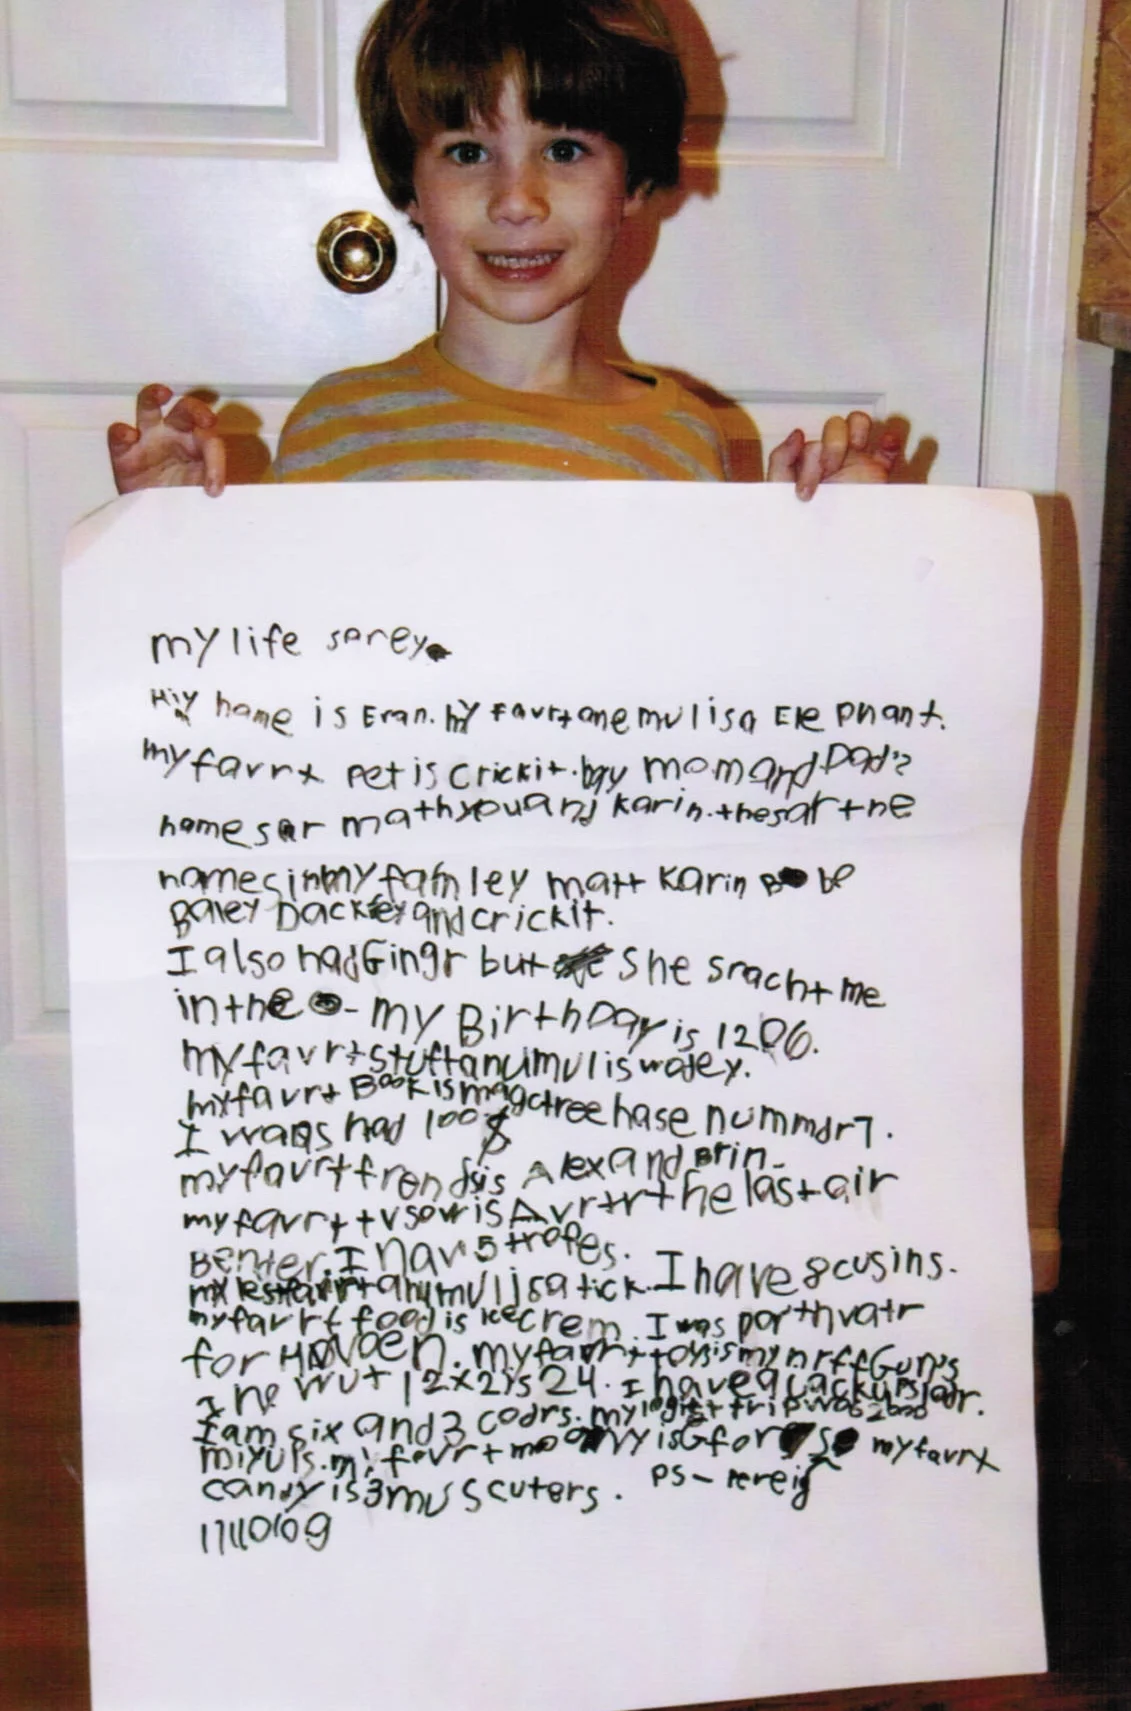 my life sorey
My name is Eran. My favrt anemul is a Elephant.
my favrt pet is crickit. my mom and Dad's
names ar mathyou and karin. thes ar the
names in my famley matt Karin B be
Baley Dackfey and crickit.
I also had Gingr but She sracht me
in the - my BirthDay is 1206.
my favrt stuft anumul is wadey.
my favrt Book is magctree hase nummdr 7.
I wans had 100$
my favrt frends is Alex and Brin.
my favrt tv sowr is Avrtr the last air
Benter. I hav 5 trofes. I have 8 cusins.
my lest favrt anymul is a tick.
my favrt food is icecrem. I was parthvatr
for HALOVEEN. my favrt toys is my nrff Gun's
I no wut 12x2 is 24. I have a Jackurslatr.
I am six and 3 codrs. my logist trip was 2000
miyuls. my favrt movy is G fors my favrt
candy is 3 muscuters. PS-
11/10/09